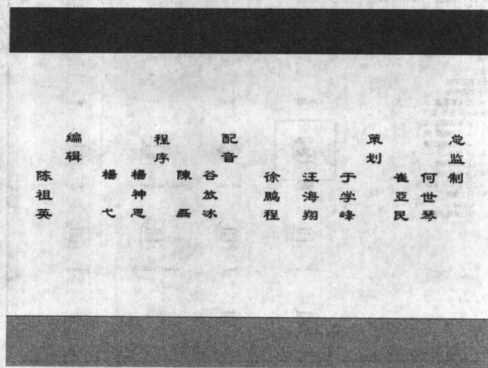 总监制
何世琴
崔亚民
策划
于学峰
汪海翔
徐鹏程
配音
谷放冰
陈磊
程序
杨神恩
杨弋
编辑
陈祖英